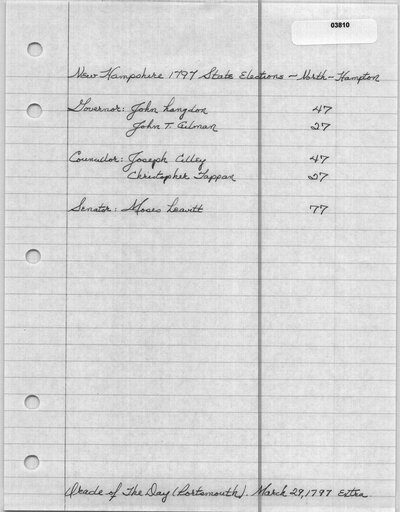 03810
New Hampshire 1797 State Elections - North-Hampton
Governor: John Langdon 47
John T. Gilman 27
Councillor: Joseph Cilley 47
Christopher Tappan 27
Senator: Moses Leavitt 77
Oracle of The Day (Portsmouth). March 29, 1797 Extra